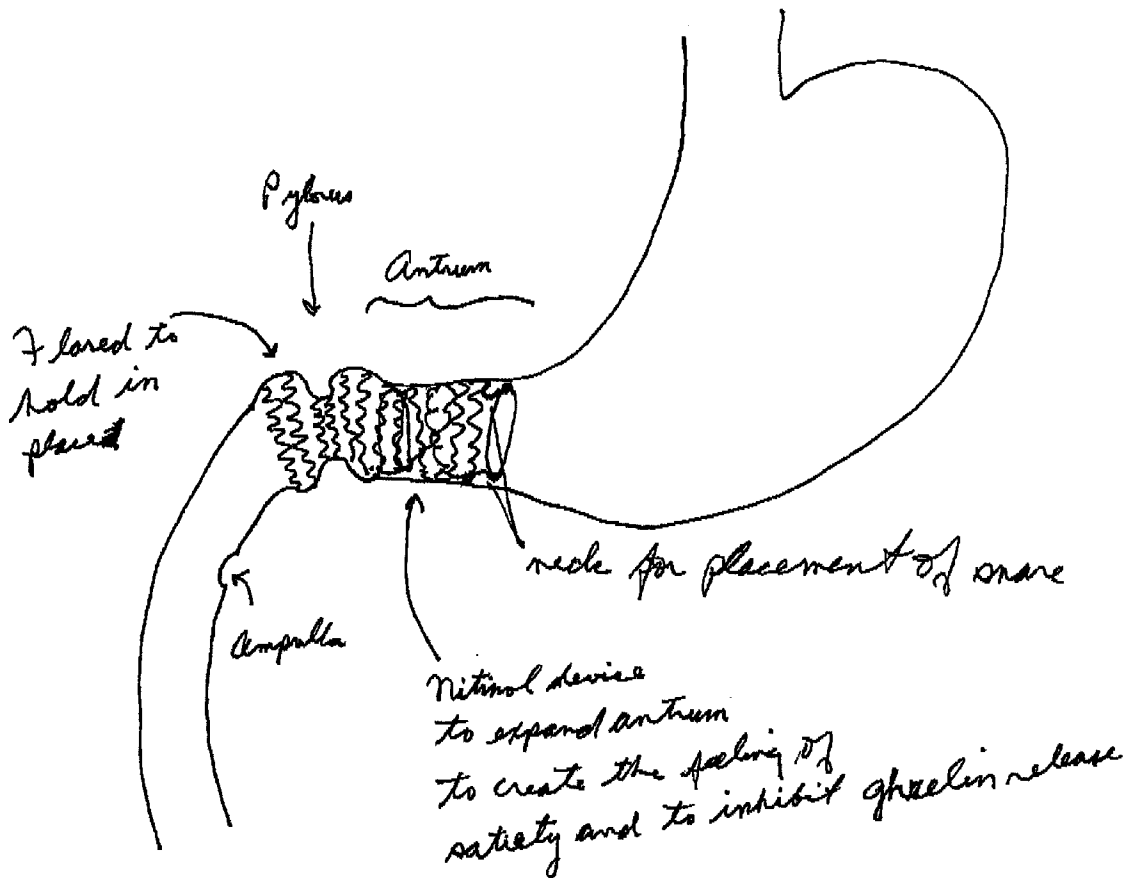 Pylorus
Antrum
Flared to
hold in
place
neck for placement of snare
Ampulla
Nitinol device
to expand antrum
to create the feeling of
satiety and to inhibit ghrelin release